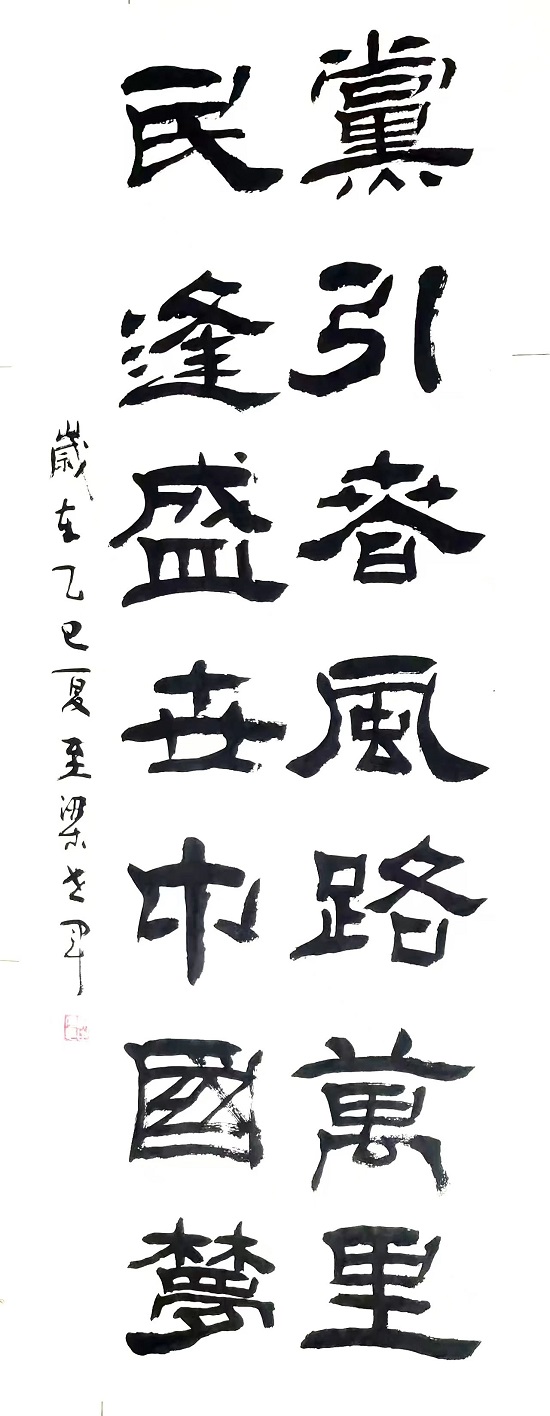 黨引春風路萬里
民逢盛世中國夢
歲在乙巳夏至梁世軍